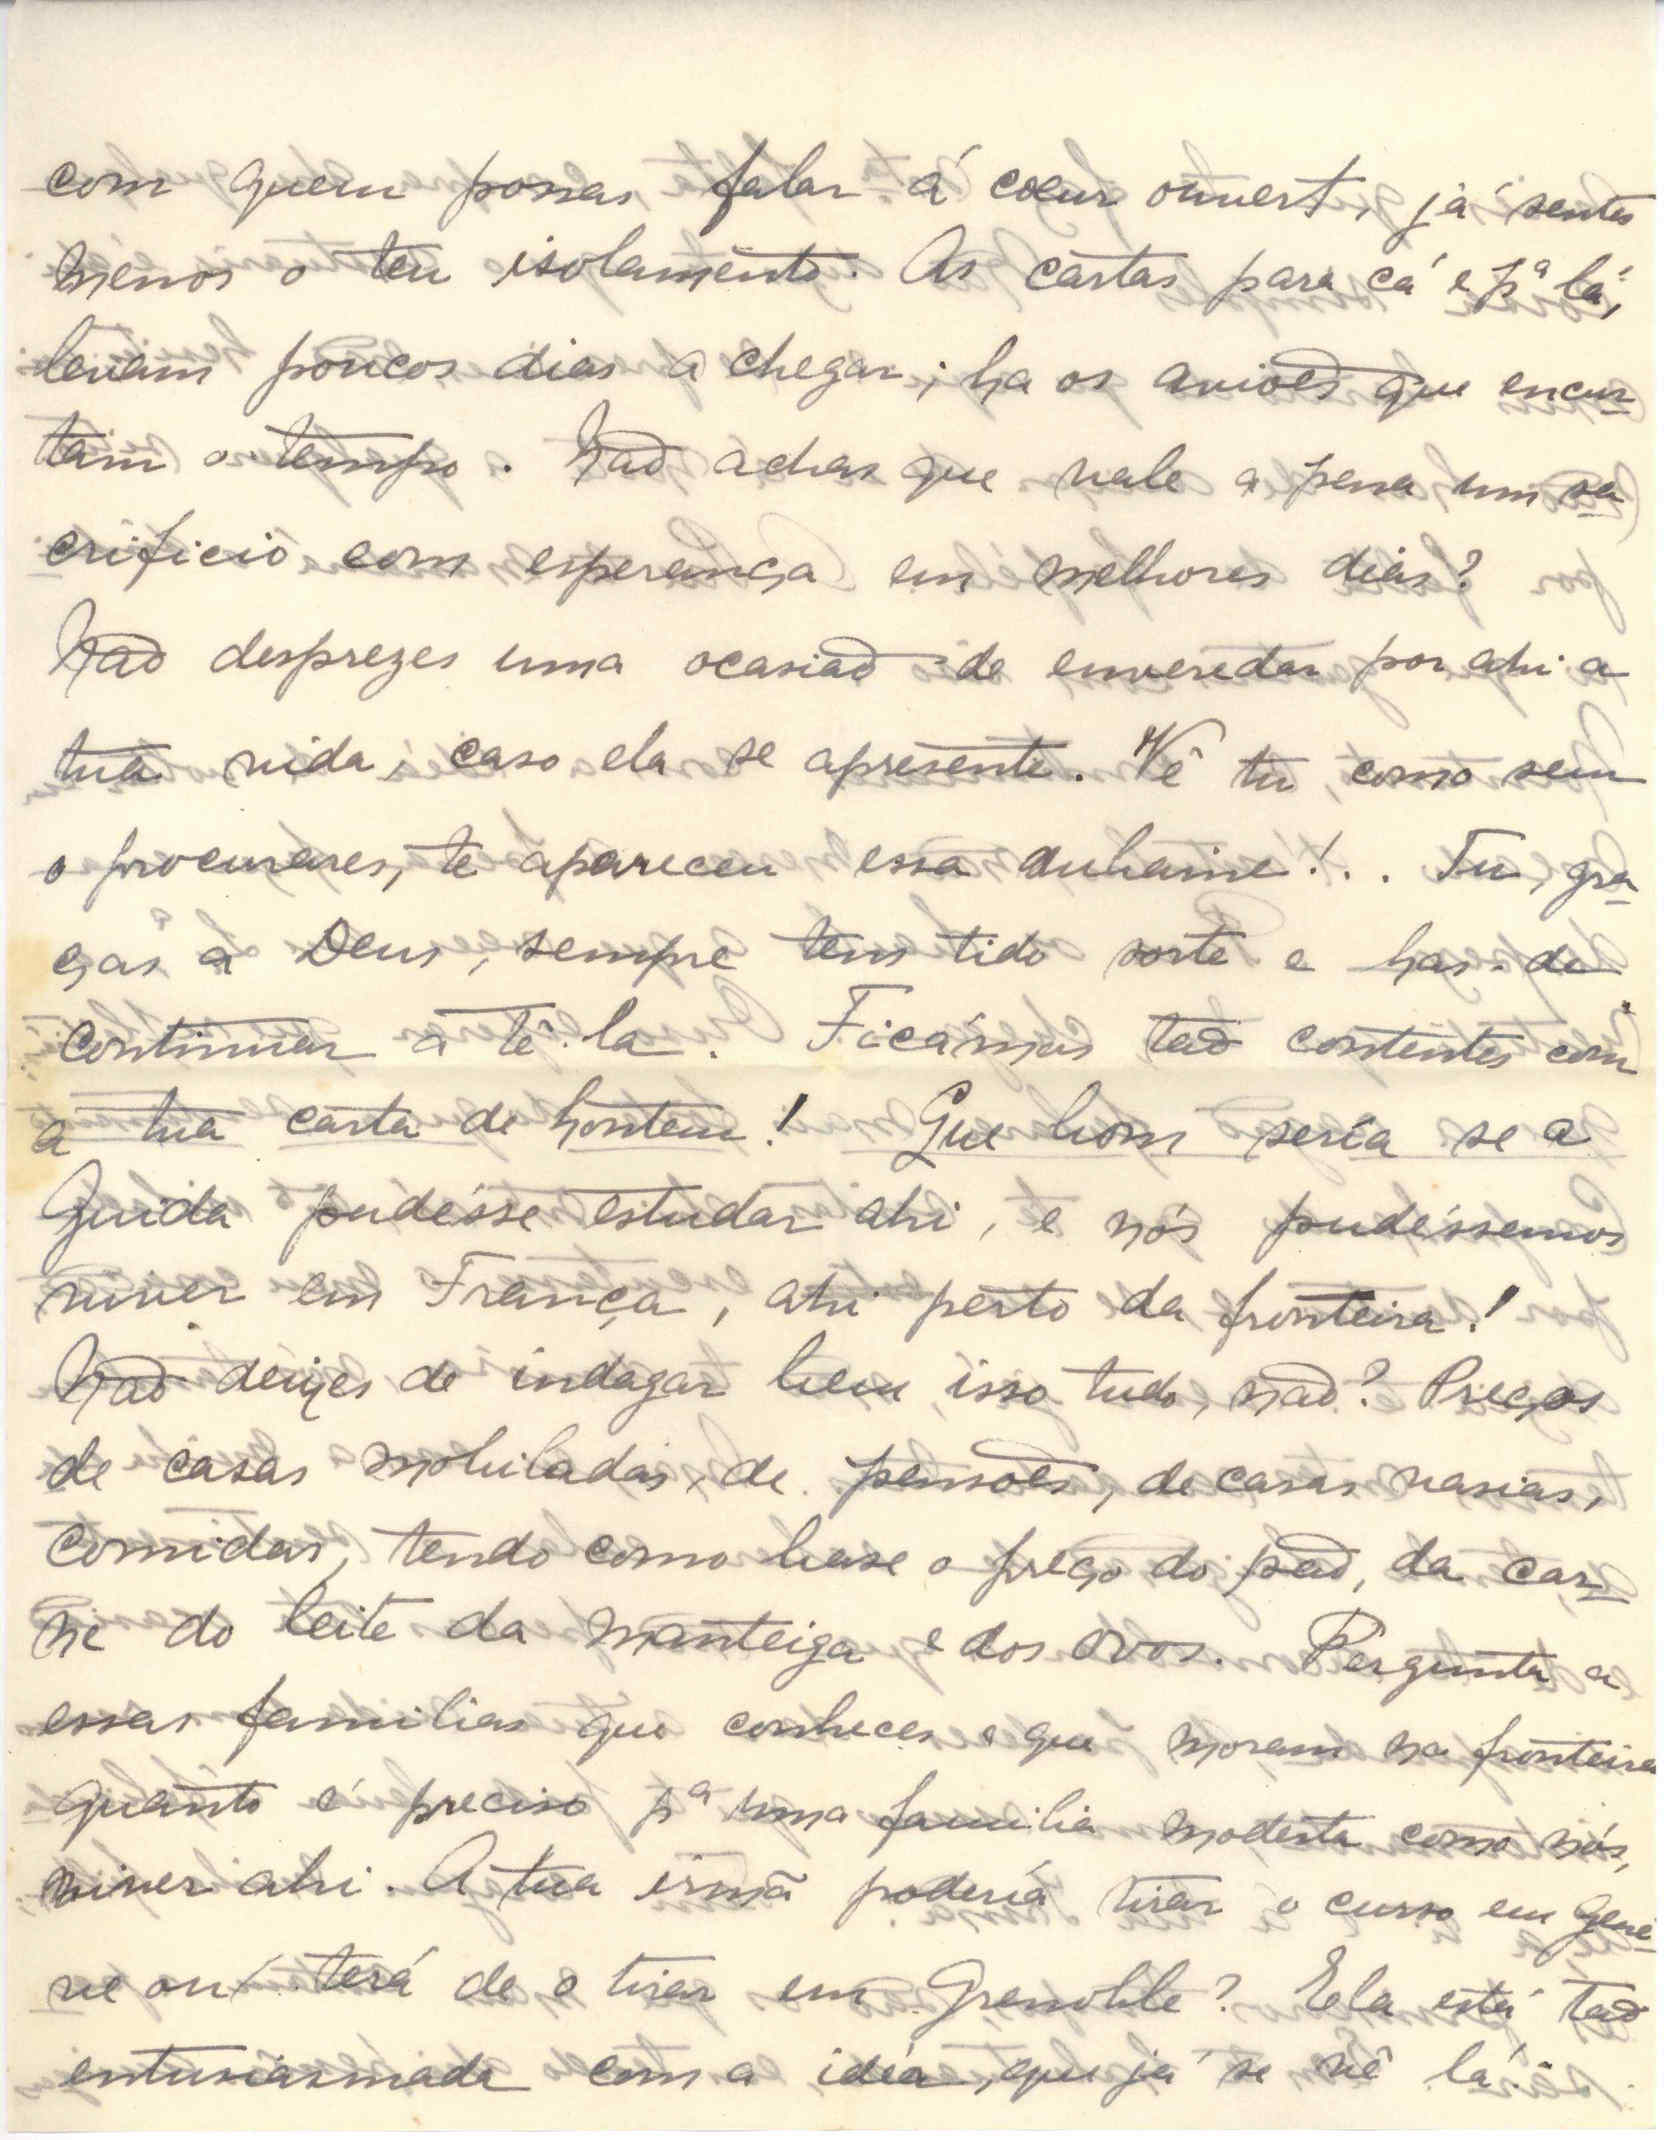 com quem possas falar á coeur ouvert, já sentes
menos o teu isolamento. As cartas para cá e pª lá,
levam poucos dias a chegar; ha os aviões que encur-
tam o tempo. Não achas que vale a pena um sa-
crificio com esperança em melhores dias?
Não desprezes uma ocasião de enveredar por ahi a
tua vida, caso ela se apresente. Vê tu, como sem
o procurares, te apareceu essa aubaine!.. Tu, gra-
ças a Deus, sempre tens tido sorte e has-de
continuar a tê-la. Ficámos tão contentes com
a tua carta de hontem! Que bom sería se a
Guida pudésse estudar ahi, e nós pudéssemos
viver em França, ahi perto da fronteira!
Não deixes de indagar bem isso tudo, não? Preços
de casas mobiladas, de pensões, de casas vasias,
comidas, tendo como base o preço do pão, da car-
ne do leite da manteiga e dos ovos. Pergunta a
essas familias que conheces e que moram na fronteira
quanto é preciso pª uma familia modesta como nós,
viver ahi. A tua irmã podería tirar o curso em Genè-
ve ou terá de o tirar em Grenoble? Ela está tão
entusiasmada com a idéa, que já se vê lá.